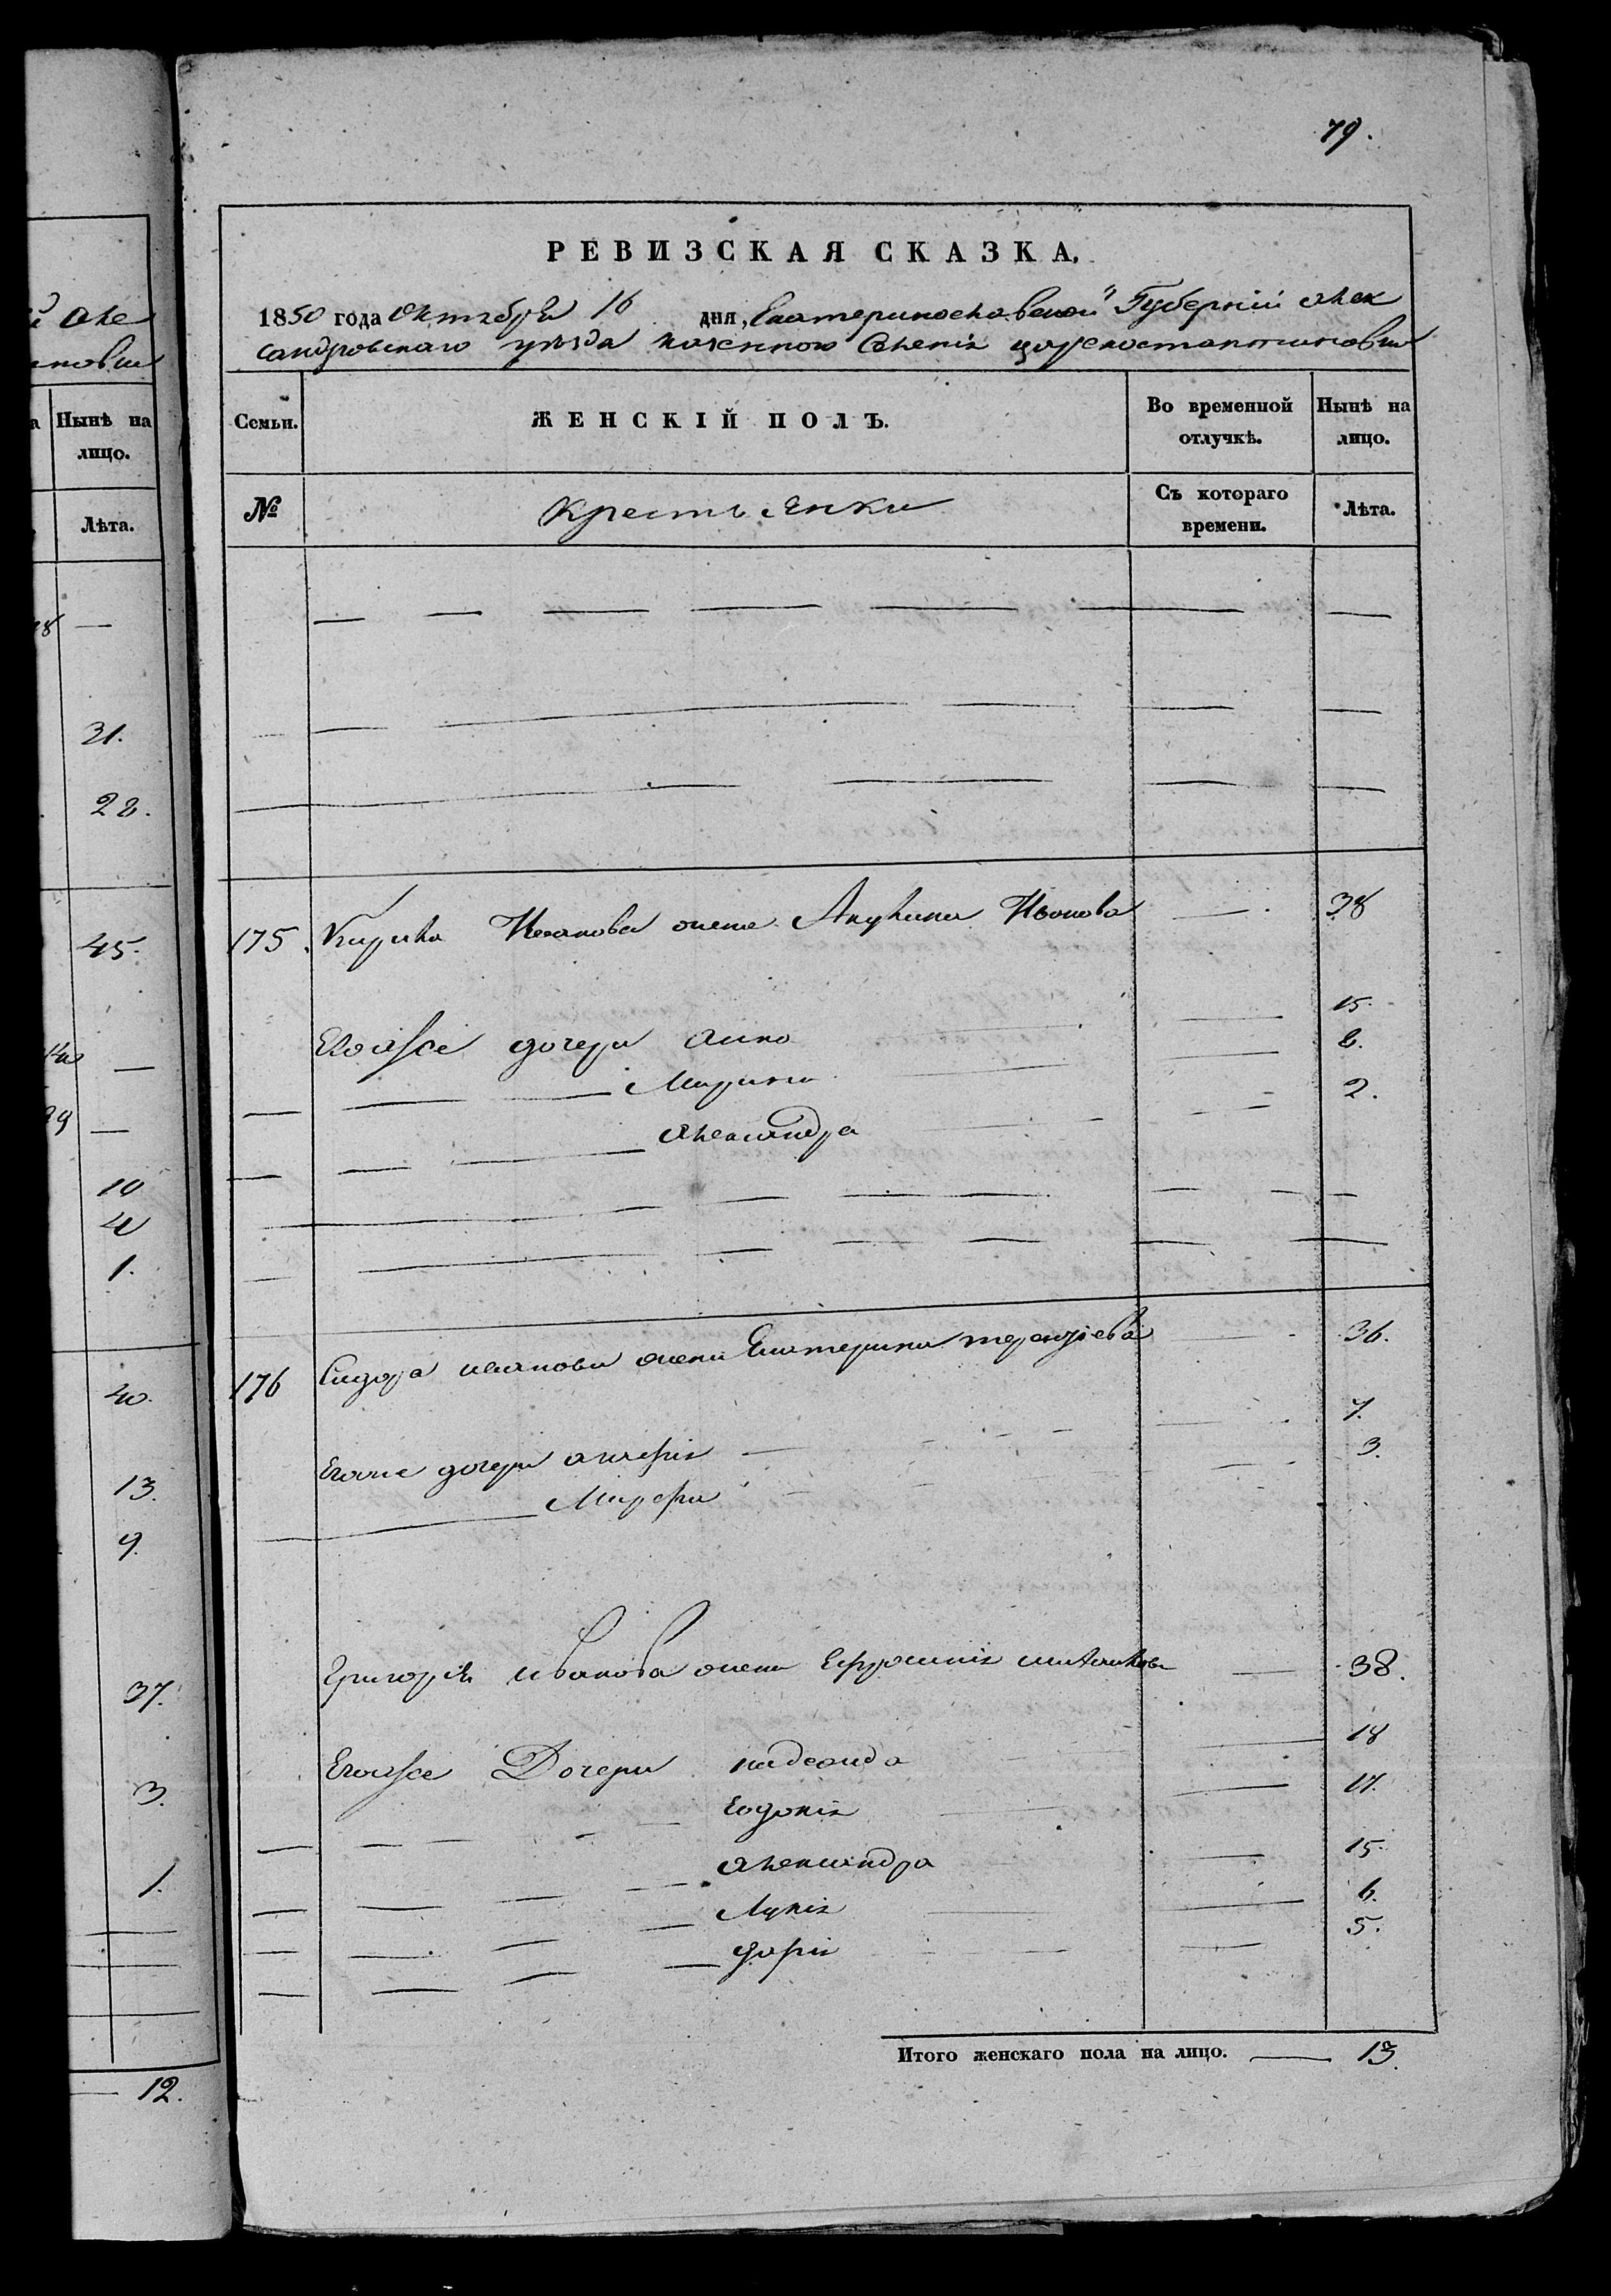 79.
РЕВИЗСКАЯ СКАЗКА,
1850 года октября 16 дня, Екатеринославской Губерніи Алек
сандровскаго уезда казенного Селенія Царекостантиновки
Семьи.
ЖЕНСКІЙ ПОЛЪ.
Во временной отлучкѣ.
Нынѣ на лицо.
№
Крестьянки
Съ котораго времени.
Лѣта.
175. Кирила Иванова жена Акулина Иванова — 38
Егоже дочери Анна — 15.
Марина — 8.
Александра — 2.
176 Сидора иванова жена Екатерина терентіева — 36.
Егоже дочери — 7.
Марфа — 3.
Григорія иванова жена Ефросинія — 38.
Егоже Дочери надежда — 18
Евдокія — 17.
Александра — 15.
Лукія — 6.
дарія — 5.
Итого женскаго пола на лицо. — 13.
Нынѣ на лицо.
Лѣта.
31.
28.
45.
10
4
1.
40.
13.
9.
37.
3.
1.
12.